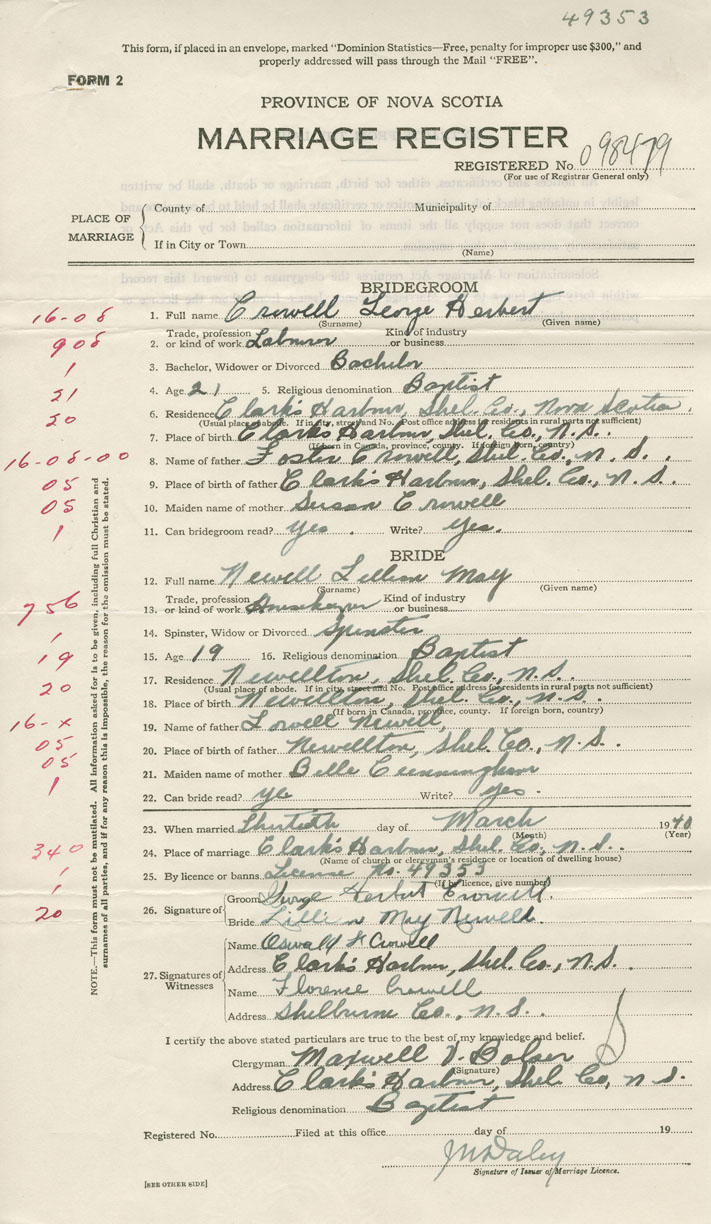 49353
This form, if placed in an envelope, marked "Dominion Statistics—Free, penalty for improper use $300," and
properly addressed will pass through the Mail "FREE".
FORM 2
PROVINCE OF NOVA SCOTIA
MARRIAGE REGISTER
REGISTERED No. 098479
(For use of Registrar General only)
PLACE OF MARRIAGE
County of Municipality of
If in City or Town
(Name)
BRIDEGROOM
16-08 1. Full name Crowell George Herbert
(Surname) (Given name)
908 2. Trade, profession or kind of work Labourer Kind of industry or business
1 3. Bachelor, Widower or Divorced Bachelor
21 4. Age 21 5. Religious denomination Baptist
20 6. Residence Clark's Harbour, Shel. Co., Nova Scotia.
(Usual place of abode. If in city, street and No. Post office address for residents in rural parts not sufficient)
7. Place of birth Clark's Harbour, Shel. Co., N. S.
(If born in Canada, province, county. If foreign born, country)
16-08-00 8. Name of father Foster Crowell, Shel. Co., N. S.
05 9. Place of birth of father Clark's Harbour, Shel. Co., N. S.
05 10. Maiden name of mother Susan Crowell
1 11. Can bridegroom read? Yes. Write? Yes.
BRIDE
12. Full name Newell Lillian May
(Surname) (Given name)
756 13. Trade, profession or kind of work Housekeeper Kind of industry or business
1 14. Spinster, Widow or Divorced Spinster
19 15. Age 19 16. Religious denomination Baptist
20 17. Residence Newellton, Shel. Co., N. S.
(Usual place of abode. If in city, street and No. Post office address for residents in rural parts not sufficient)
18. Place of birth Newellton, Shel. Co., N. S.
(If born in Canada, province, county. If foreign born, country)
16-x 19. Name of father Lowell Newell,
05 20. Place of birth of father Newellton, Shel. Co., N. S.
05 21. Maiden name of mother Belle Cunningham
1 22. Can bride read? yes Write? yes.
23. When married Thirtieth day of March 1940
(Month) (Year)
340 24. Place of marriage Clark's Harbour, Shel. Co., N. S.
(Name of church or clergyman's residence or location of dwelling house)
1 25. By licence or banns License No. 49353
(If by licence, give number)
1 26. Signature of Groom George Herbert Crowell.
20 Bride Lillian May Newell.
27. Signatures of Witnesses
Name Oswald H Crowell
Address Clark's Harbour, Shel. Co., N. S.
Name Florence Crowell
Address Shelburne Co., N. S.
I certify the above stated particulars are true to the best of my knowledge and belief.
Clergyman Maxwell V. Bolser
(Signature)
Address Clark's Harbour, Shel. Co, N. S.
Religious denomination Baptist
Registered No. Filed at this office day of 19
Signature of Issuer of Marriage Licence.
[SEE OTHER SIDE]
NOTE.—This form must not be mutilated. All information asked for is to be given, including full Christian and
surnames of all parties, and if for any reason this is impossible, the reason for the omission must be stated.